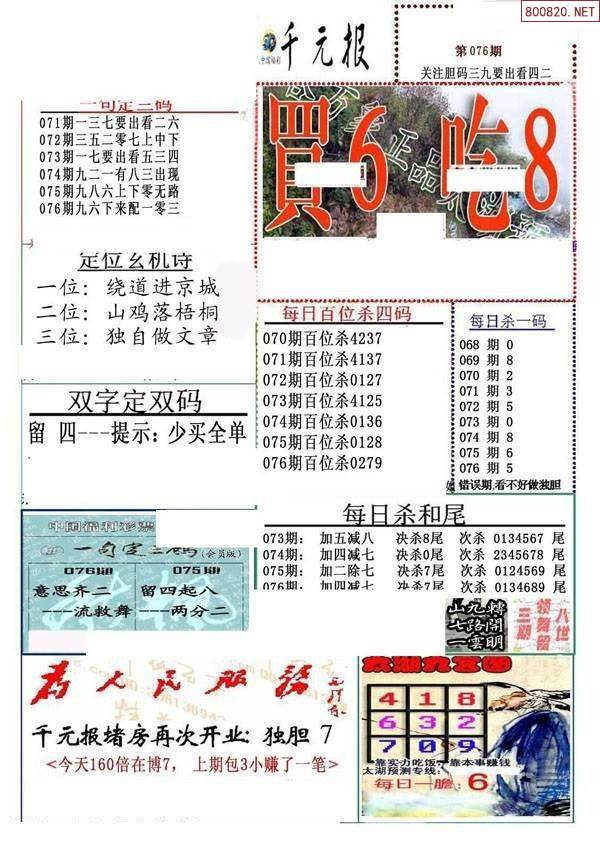 800820.NET
千元报
第076期
关注胆码三九要出看四二
一句定三码
071期一三七要出看二六
072期三五二零七上中下
073期一七要出看五三四
074期九二一有八三出现
075期九八六上下零无路
076期九六下来配一零三
買6 吃8
定位玄机诗
一位：绕道进京城
二位：山鸡落梧桐
三位：独自做文章
每日百位杀四码
070期百位杀4237
071期百位杀4137
072期百位杀0127
073期百位杀4125
074期百位杀0136
075期百位杀0128
076期百位杀0279
每日杀一码
068 期 0
069 期 8
070 期 2
071 期 3
072 期 5
073 期 0
074 期 8
075 期 6
076 期 5
错误期,看不好做独胆
双字定双码
留 四---提示：少买全单
每日杀和尾
073期： 加五减八 决杀8尾 次杀 0134567 尾
074期： 加四减七 决杀0尾 次杀 2345678 尾
075期： 加二除七 决杀7尾 次杀 0124569 尾
076期： 加四减七 决杀7尾 次杀 0134689 尾
中国福利彩票
一句定三码(会员版)
076期 075期
意思齐二 留四起八
---流救舞 ---两分二
山九轉
七路開
一雲明
八世
领舞留
三期
为人民服务
千元报堵房再次开业：独胆 7
<今天160倍在博7， 上期包3小赚了一笔>
太湖九宫图
4 1 8
6 3 2
7 0 9
靠实力吃饭，靠本事赚钱
太湖预测专线：
每日一胆：6